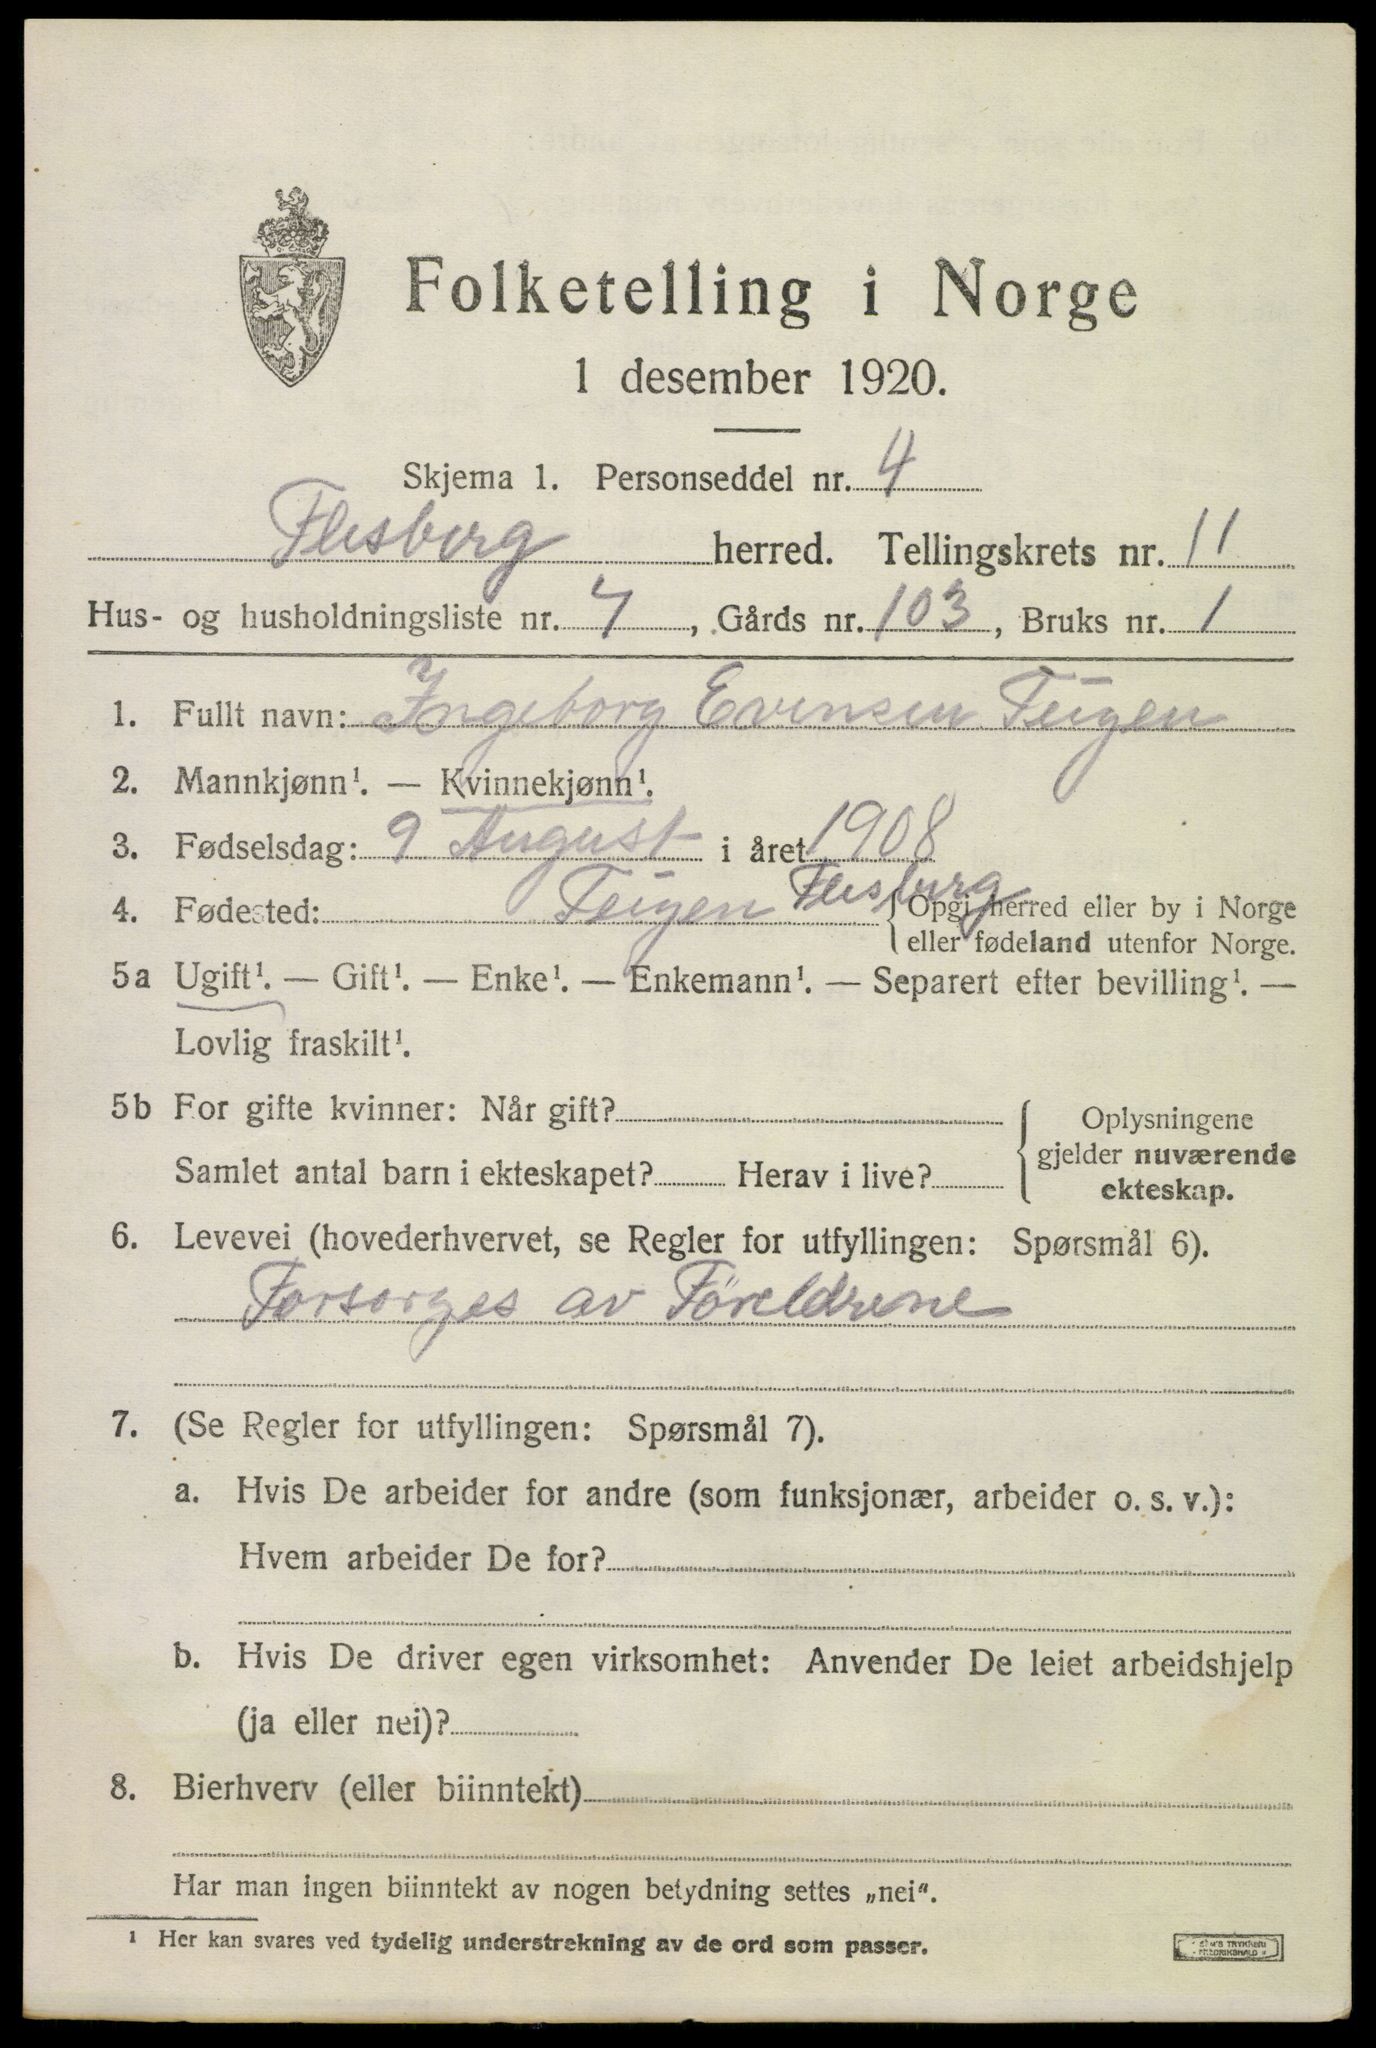 Folketelling i Norge
1 desember 1920.
Skjema 1. Personseddel nr. 4
Flesberg herred. Tellingskrets nr. 11
Hus- og husholdningsliste nr. 7, Gårds nr. 103, Bruks nr. 1
1. Fullt navn: Ingeborg Evensen Teigen
2. Mannkjønn¹. — Kvinnekjønn¹.
3. Fødselsdag: 9 August i året 1908
Flesberg
4. Fødested: Teigen { Opgi herred eller by i Norge
eller fødeland utenfor Norge.
5a Ugift¹. — Gift¹. — Enke¹. — Enkemann¹. — Separert efter bevilling¹. —
Lovlig fraskilt¹.
5b For gifte kvinner: Når gift? { Oplysningene
gjelder nuværende
Samlet antal barn i ekteskapet? Herav i live?
ekteskap.
6. Levevei (hovederhvervet, se Regler for utfyllingen: Spørsmål 6).
Forsorges av Foreldrene
7. (Se Regler for utfyllingen: Spørsmål 7).
a. Hvis De arbeider for andre (som funksjonær, arbeider o. s. v.):
Hvem arbeider De for?
b. Hvis De driver egen virksomhet: Anvender De leiet arbeidshjelp
(ja eller nei)?
8. Bierhverv (eller biinntekt)
Har man ingen biinntekt av nogen betydning settes „nei".
¹ Her kan svares ved tydelig understrekning av de ord som passer.
TRYKKERI
FREDRIKSHALD